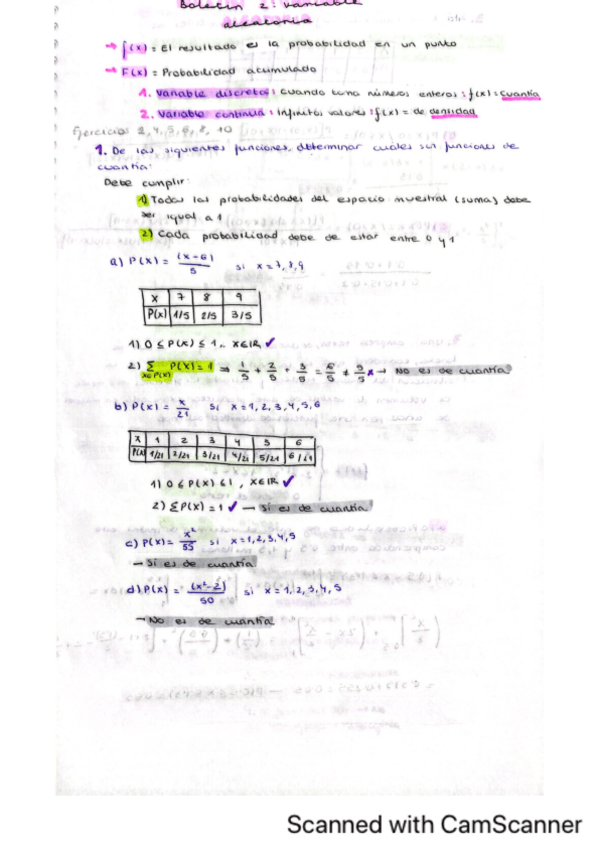 Boletín 2: variable
aleatoria
→ f(x) = El resultado es la probabilidad en un punto
→ F(x) = Probabilidad acumulada
1. Variable discreta: Cuando toma números enteros: f(x) = cuantía
2. Variable continua: Infinitos valores: f(x) = de densidad
Ejercicios 2, 4, 5, 6, 8, 10
1. De las siguientes funciones, determinar cuales son funciones de
cuantía:
Debe cumplir:
1) Todas las probabilidades del espacio muestral (suma) debe
ser igual a 1
2) Cada probabilidad debe de estar entre 0 y 1
a) P(x) = (x-6)/5 si x = 7, 8, 9
x 7 8 9
P(x) 1/5 2/5 3/5
1) 0 ≤ P(x) ≤ 1, x∈IR ✓
2) Σ P(x) = 1 ⇒ 1/5 + 2/5 + 3/5 = 6/5 ≠ 5/5 x → No es de cuantía
x∈P(x)
b) P(x) = x/21 si x = 1, 2, 3, 4, 5, 6
x 1 2 3 4 5 6
P(x) 1/21 2/21 3/21 4/21 5/21 6/21
1) 0 ≤ P(x) ≤ 1, x∈IR ✓
2) ΣP(x) = 1 ✓ → Sí es de cuantía
c) P(x) = x²/55 si x = 1, 2, 3, 4, 5
→ Sí es de cuantía
d) P(x) = (x²-2)/50 si x = 1, 2, 3, 4, 5
→ No es de cuantía
Scanned with CamScanner